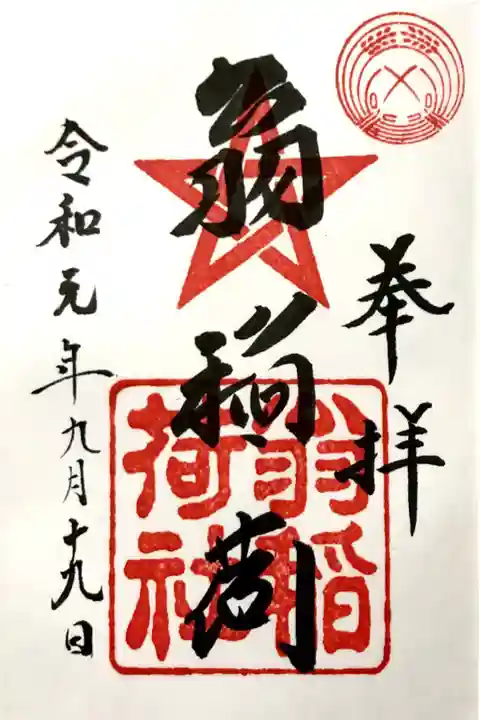 奉拝
翁稲荷
翁稲
荷社
令和元年九月十九日